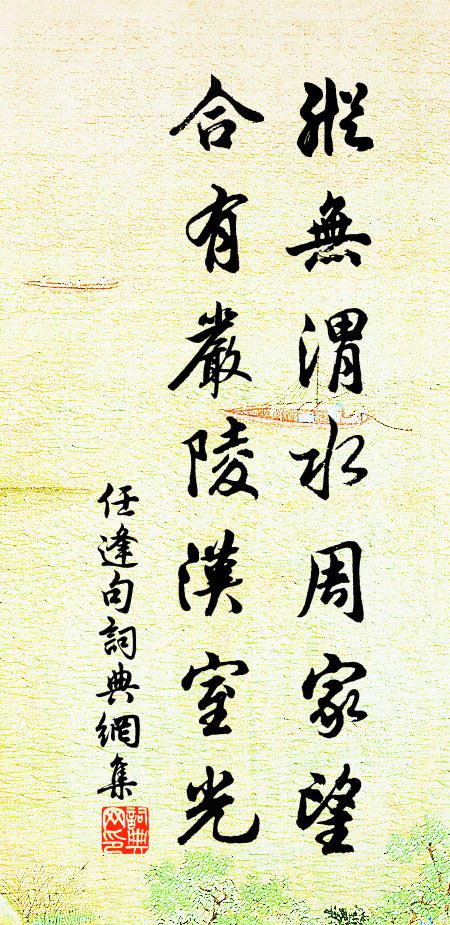 縱無渭水周家望
合有嚴陵漢室光
任逢句詞典網集
詞典
网印